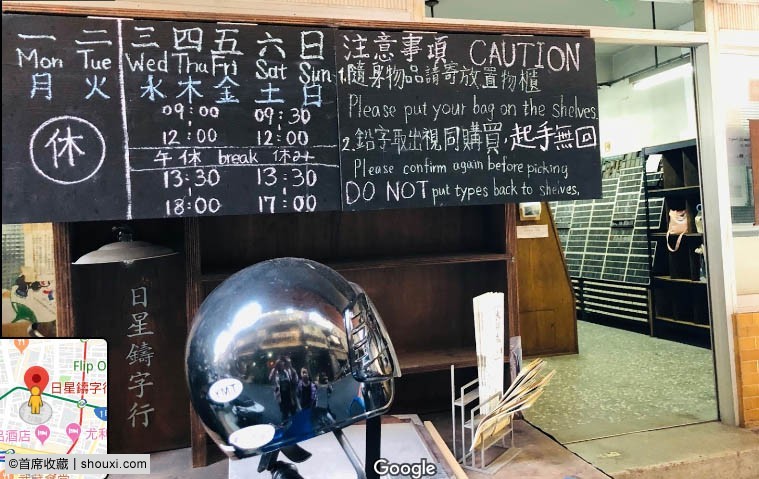 一 二 三 四 五 六 日
Mon Tue Wed Thu Fri Sat Sun
月 火 水 木 金 土 日
休
09:00 09:30
12:00 12:00
午休 break 休み
13:30 13:30
18:00 17:00
注意事項 CAUTION
1.隨身物品請寄放置物櫃
Please put your bag on the shelves.
2.鉛字取出視同購買,起手無回
Please confirm again before picking
DO NOT put types back to shelves.
日星鑄字行
Flip O
日星鑄字行
酒店
尤利
©首席收藏 | shouxi.com
Google